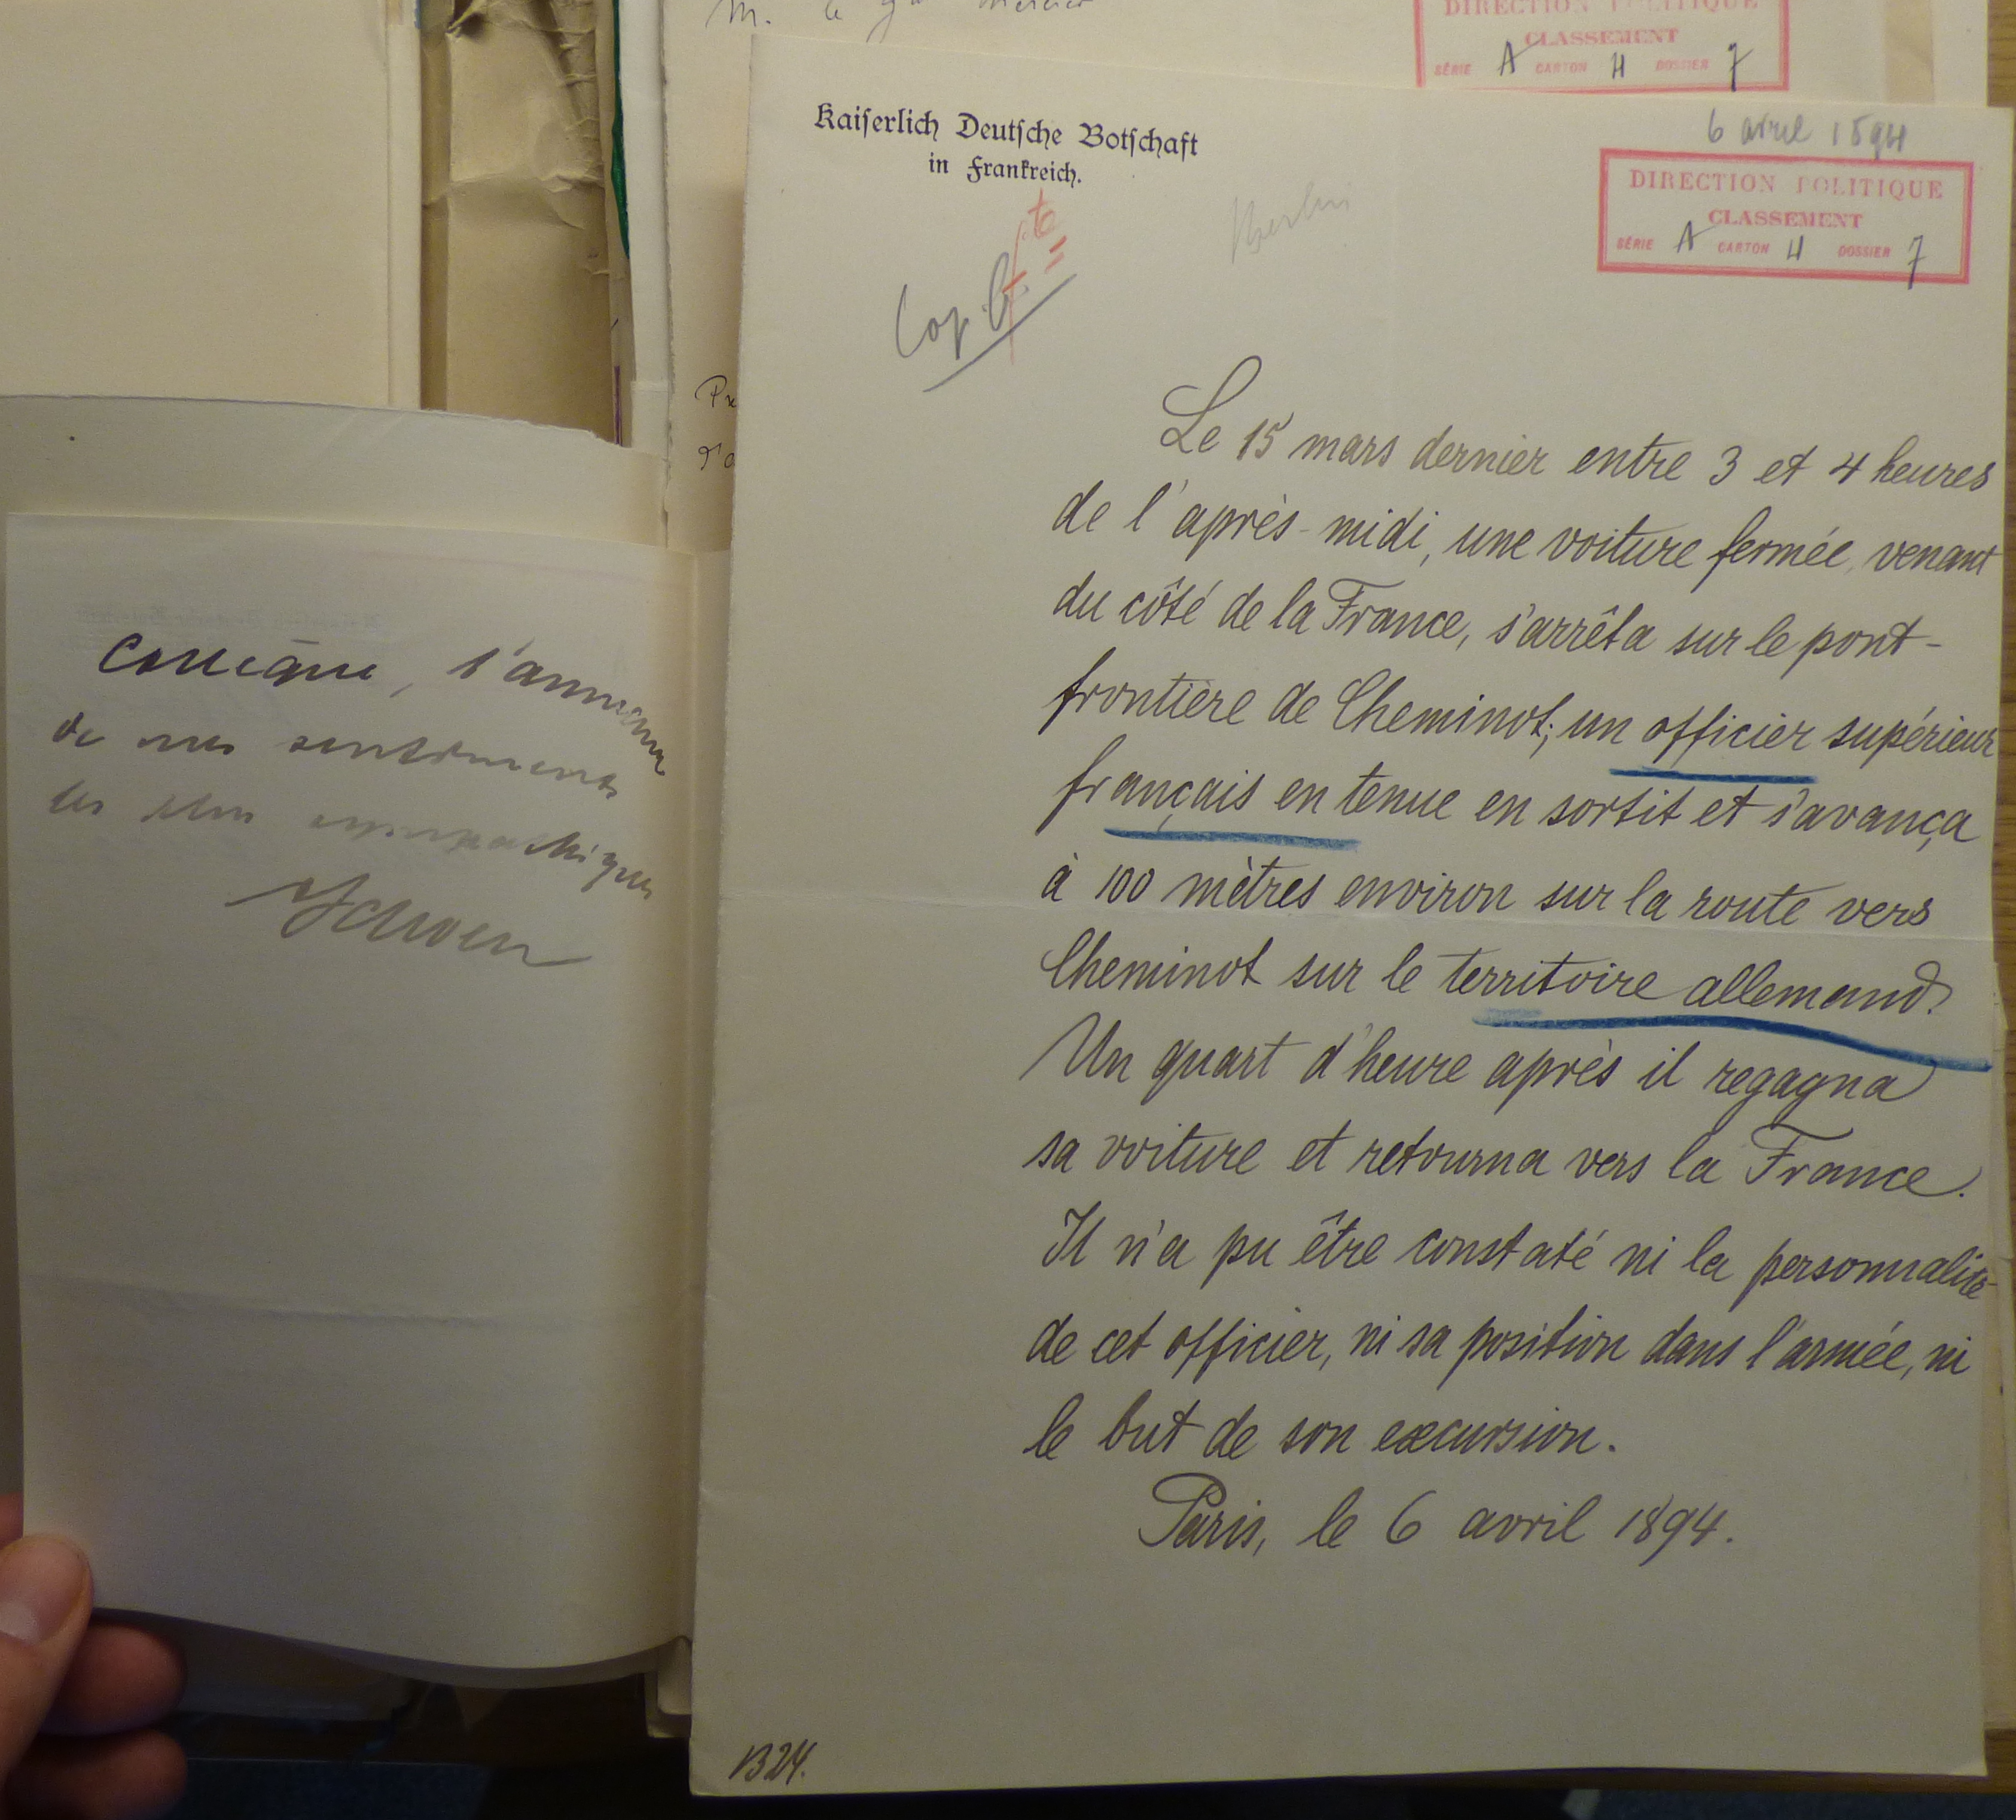 M. le
DIRECTION POLITIQUE
CLASSEMENT
SÉRIE A CARTON 4 DOSSIER 7
Kaiserlich Deutsche Botschaft
in Frankreich.
6 avril 1894
DIRECTION POLITIQUE
CLASSEMENT
SÉRIE A CARTON 4 DOSSIER 7
Berlin
Cop.
Le 15 mars dernier entre 3 et 4 heures
de l'après-midi, une voiture fermée, venant
du côté de la France, s'arrêta sur le pont-
frontière de Cheminot; un officier supérieur
français en tenue en sortit et s'avança
à 100 mètres environ sur la route vers
Cheminot sur le territoire allemand.
Un quart d'heure après il regagna
sa voiture et retourna vers la France.
Il n'a pu être constaté ni la personnalité
de cet officier, ni sa position dans l'armée, ni
le but de son excursion.
Paris, le 6 avril 1894.
B 24.
Collègue,
de mes sentiments
les plus sympathiques
Schoen